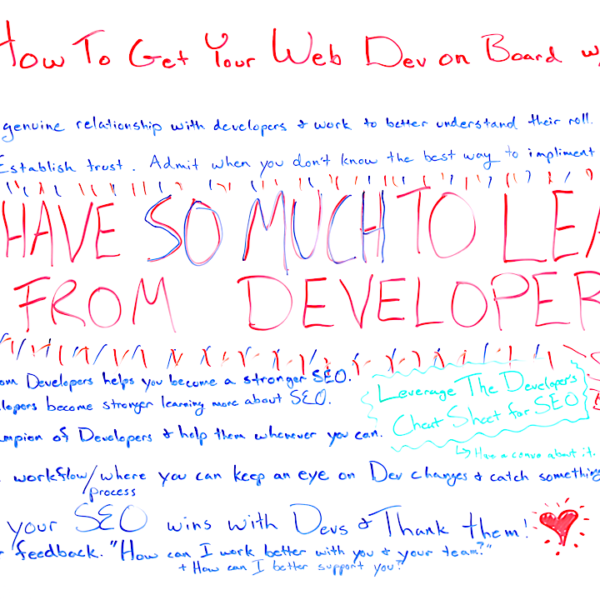 How To Get Your Web Dev on Board w/
genuine relationship with developers & work to better understand their roll.
Establish trust. Admit when you don't know the best way to impliment
HAVE SO MUCH TO LEA
FROM DEVELOPER
om Developers helps you become a stronger SEO.
lopers become stronger learning more about SEO.
mpion of Developers & help them whenever you can.
Leverage The Developers
Cheat Sheet for SEO
↳ Have a convo about it.
workflow/where you can keep an eye on Dev changes & catch something
process
your SEO wins with Devs & Thank them!
feedback. "How can I work better with you & your team?"
+ How can I better support you?